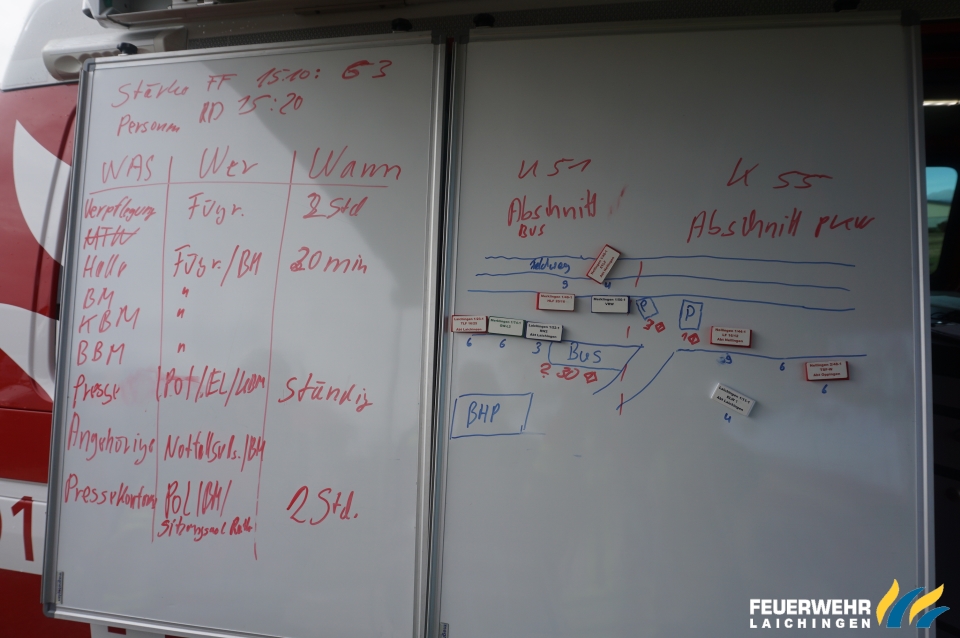 Stärke FF 15:10: 63
Personen RD 15:20
WAS Wer Wann
Verpflegung Fügr. 2 Std
MTW
Halle Fügr./BM 20 min
BM "
KBM "
BBM "
Presse Pol/EL/KBM ständig
Angehörige Notfalls./BM
Pressekonferenz Pol/BM/ 2 Std.
Sitzungssaal Rath.
K 51 K 55
Abschnitt Abschnitt PKW
BUS
Feldweg
3 4
P P
3 1
6 6 3 BUS 9 6 6
? 30
BHP
4
01
FEUERWEHR
LAICHINGEN